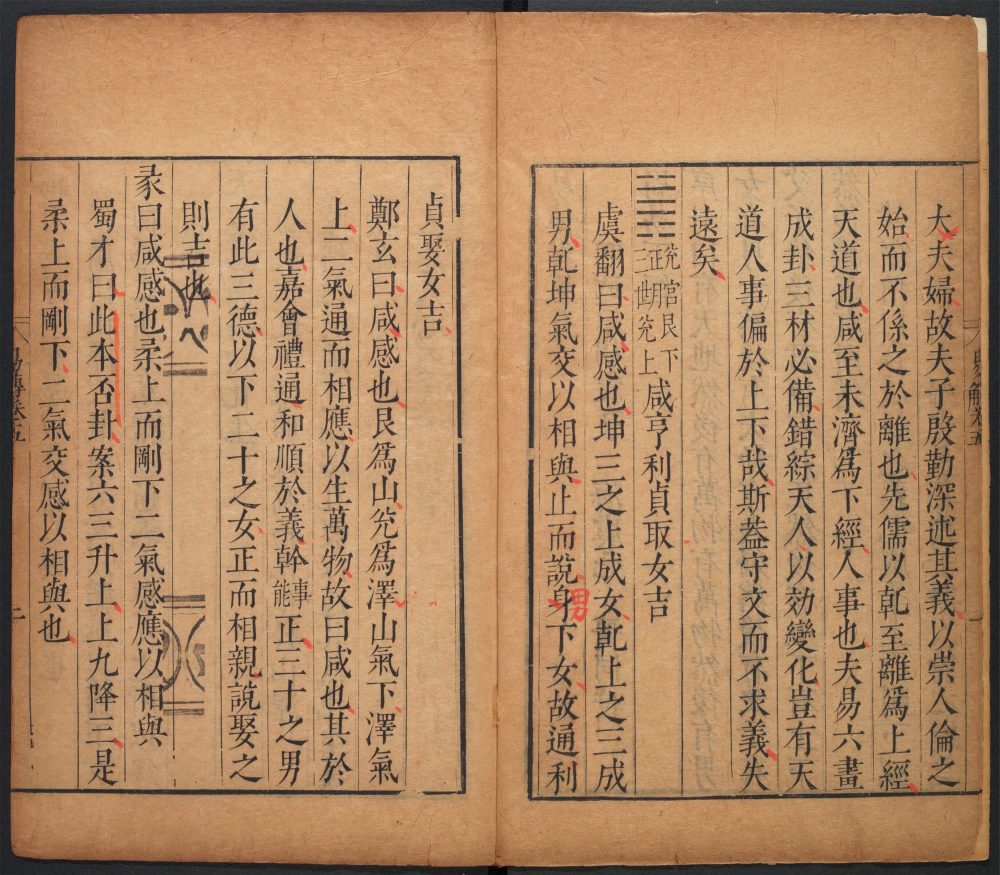 大夫婦故夫子殷勤深述其義以崇人倫之
始而不係之於離也先儒以乹至離爲上經
天道也咸至未濟爲下經人事也夫易六畫
成卦三材必備錯綜天人以効變化豈有天
道人事偏於上下哉斯葢守文而不求義失
遠矣
䷞兊宮艮下兊上三世正月咸亨利貞取女吉
虞翻曰咸感也坤三之上成女乹上之三成
男乹坤氣交以相與止而說身男下女故通利
貞娶女吉
鄭玄曰咸感也艮爲山兊爲澤山氣下澤氣
上二氣通而相應以生萬物故曰咸也其於
人也嘉會禮通和順於義幹事能正三十之男
有此三德以下二十之女正而相親說娶之
則吉也
彖曰咸感也柔上而剛下二氣感應以相與
蜀才曰此本否卦案六三升上上九降三是
柔上而剛下二氣交感以相與也